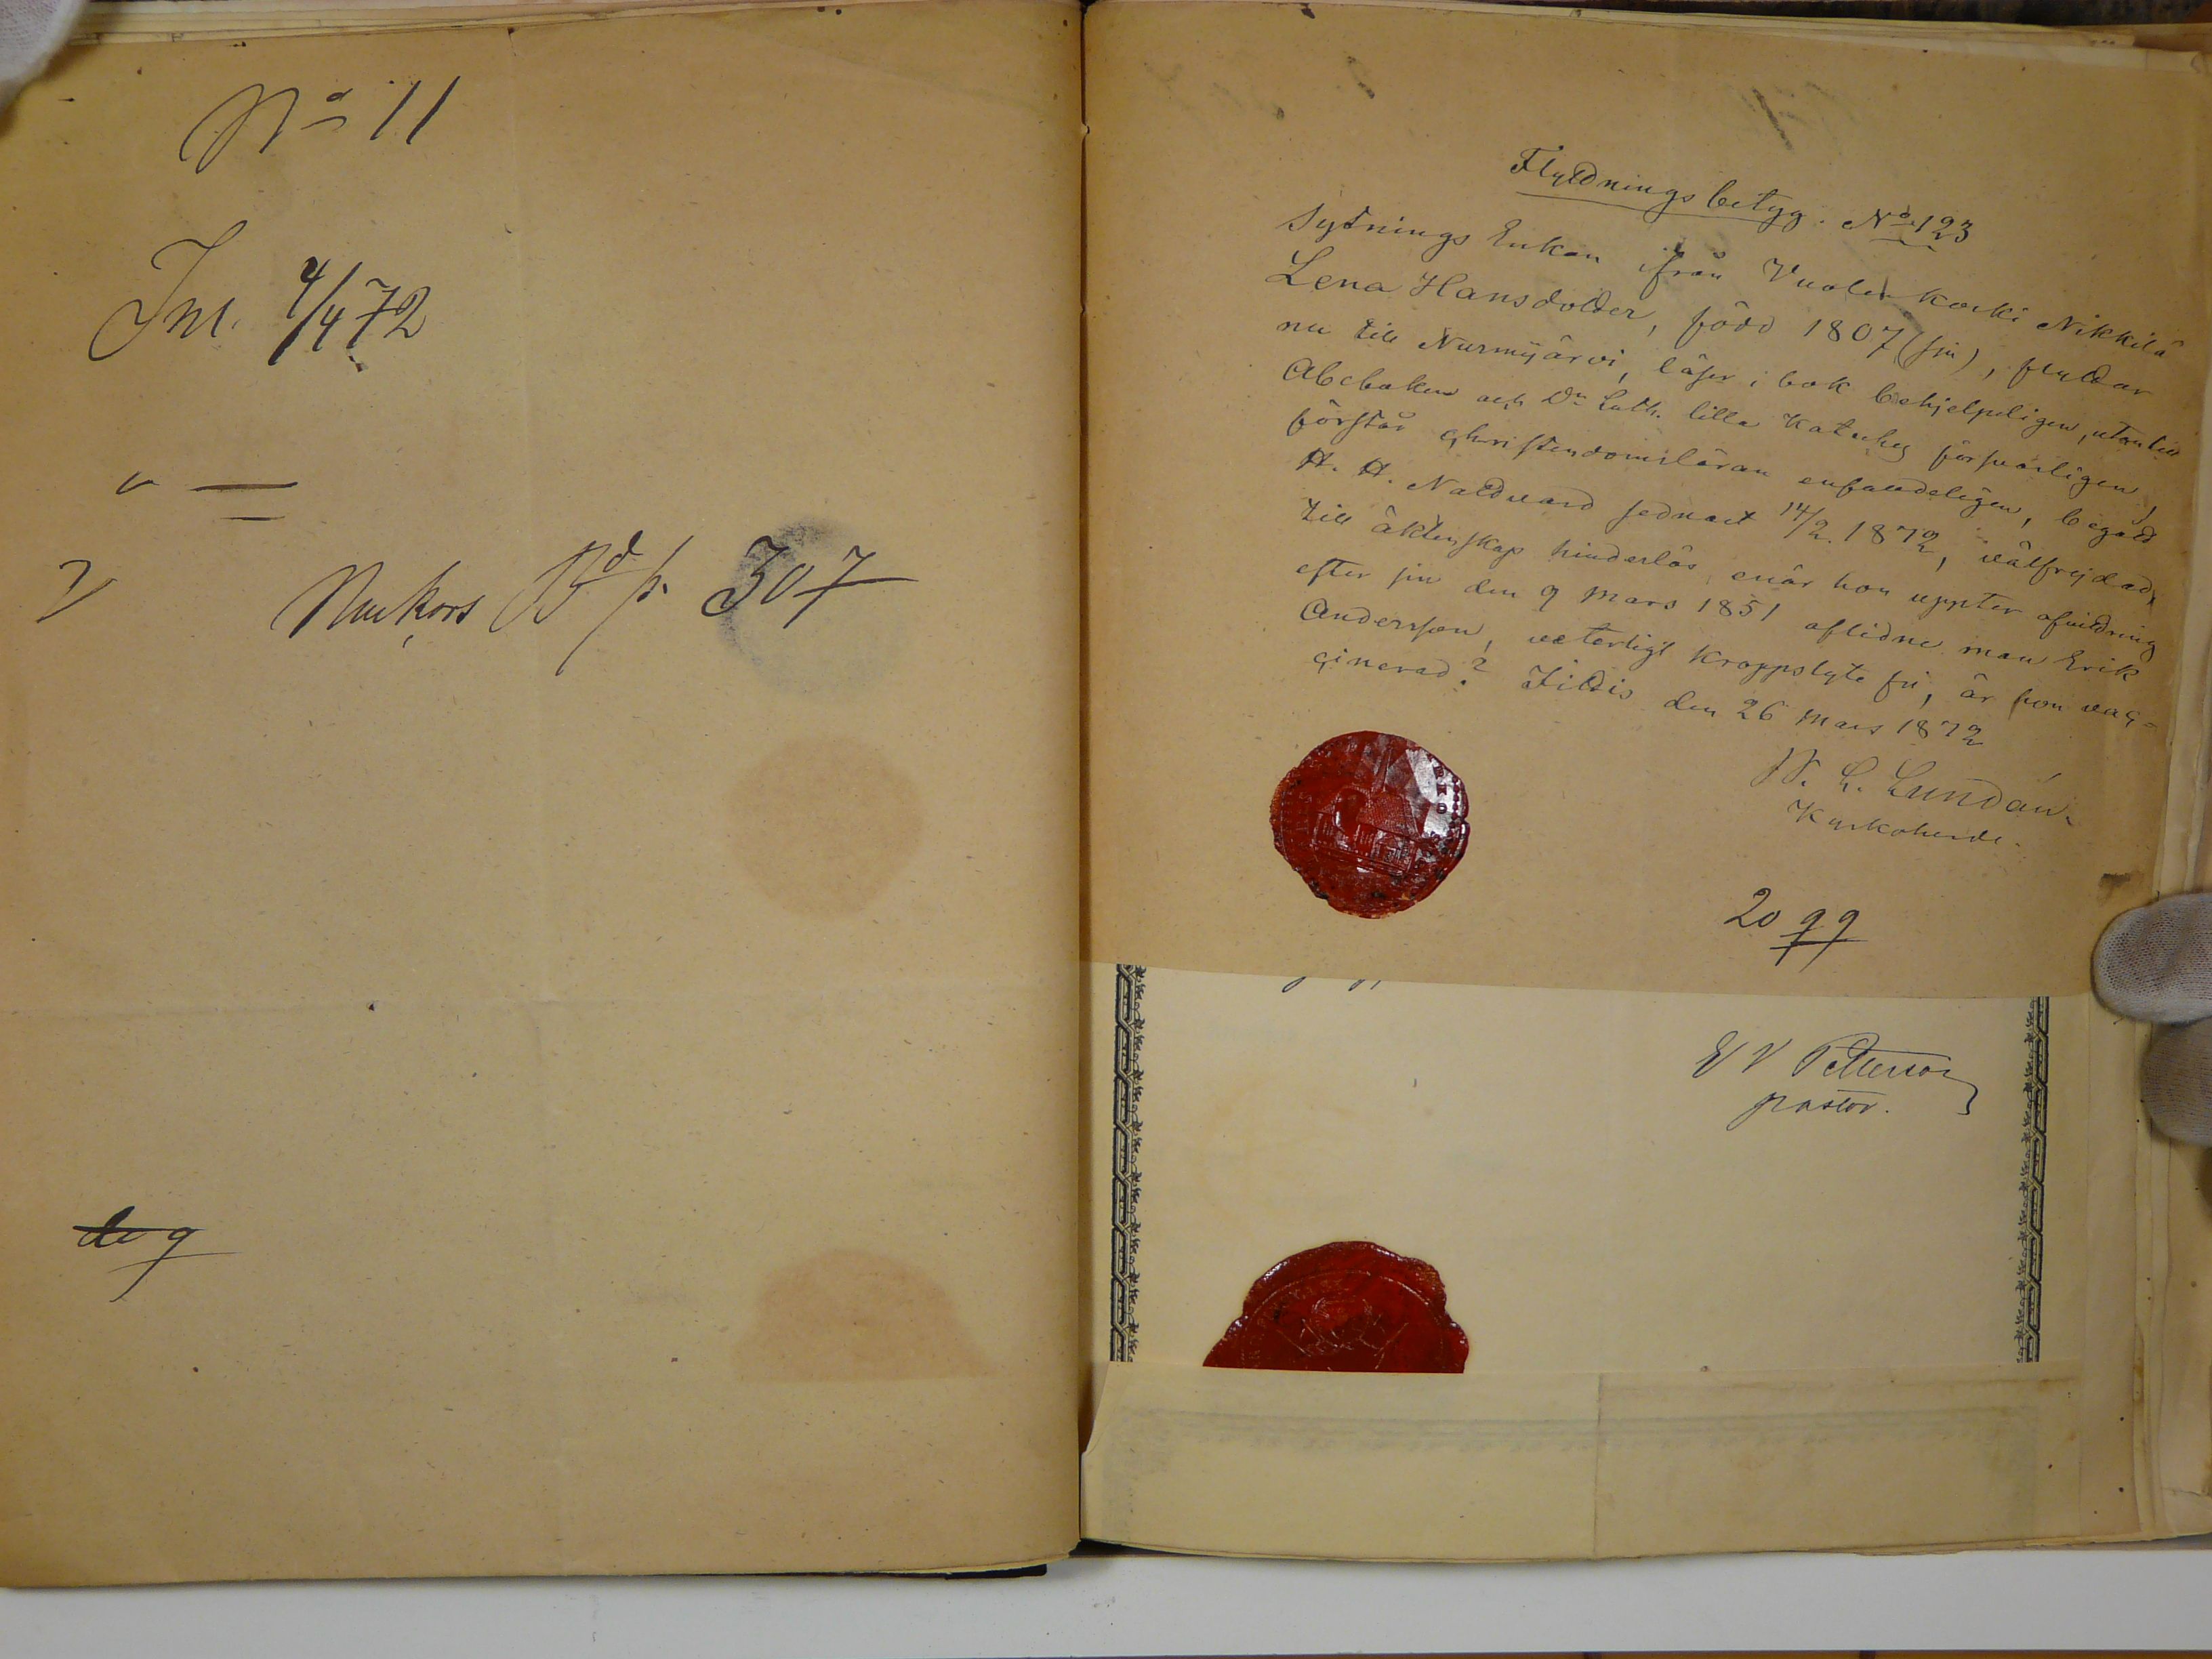 No 11
Inl. 4/4 72
Nurkois Bd p. 307
Flyttningsbetyg. No 123
Sytnings Enkan ifrån Vuolenkoski Nikkilä
Lena Hansdotter, född 1807 (sju), flyttar
nu till Nurmijärvi, läser i bok behjelpeligen, utantill
Abcboken och Dr Luth. lilla Kateches försvarligen,
förstår christendomsläran enfaldeligen, begått
H. H. Nattvard sednast 14/2 1872, välfrejdad,
till äktenskap hinderlös, enär hon uppter afvittring
efter sin den 9 Mars 1851 aflidne man Erik
Andersson, veterligt kroppslyte fri, är hon vac-
cinerad? Iittis den 26 Mars 1872
Lundán.
Kyrkoherde.
20 99
Pettersson
pastor.